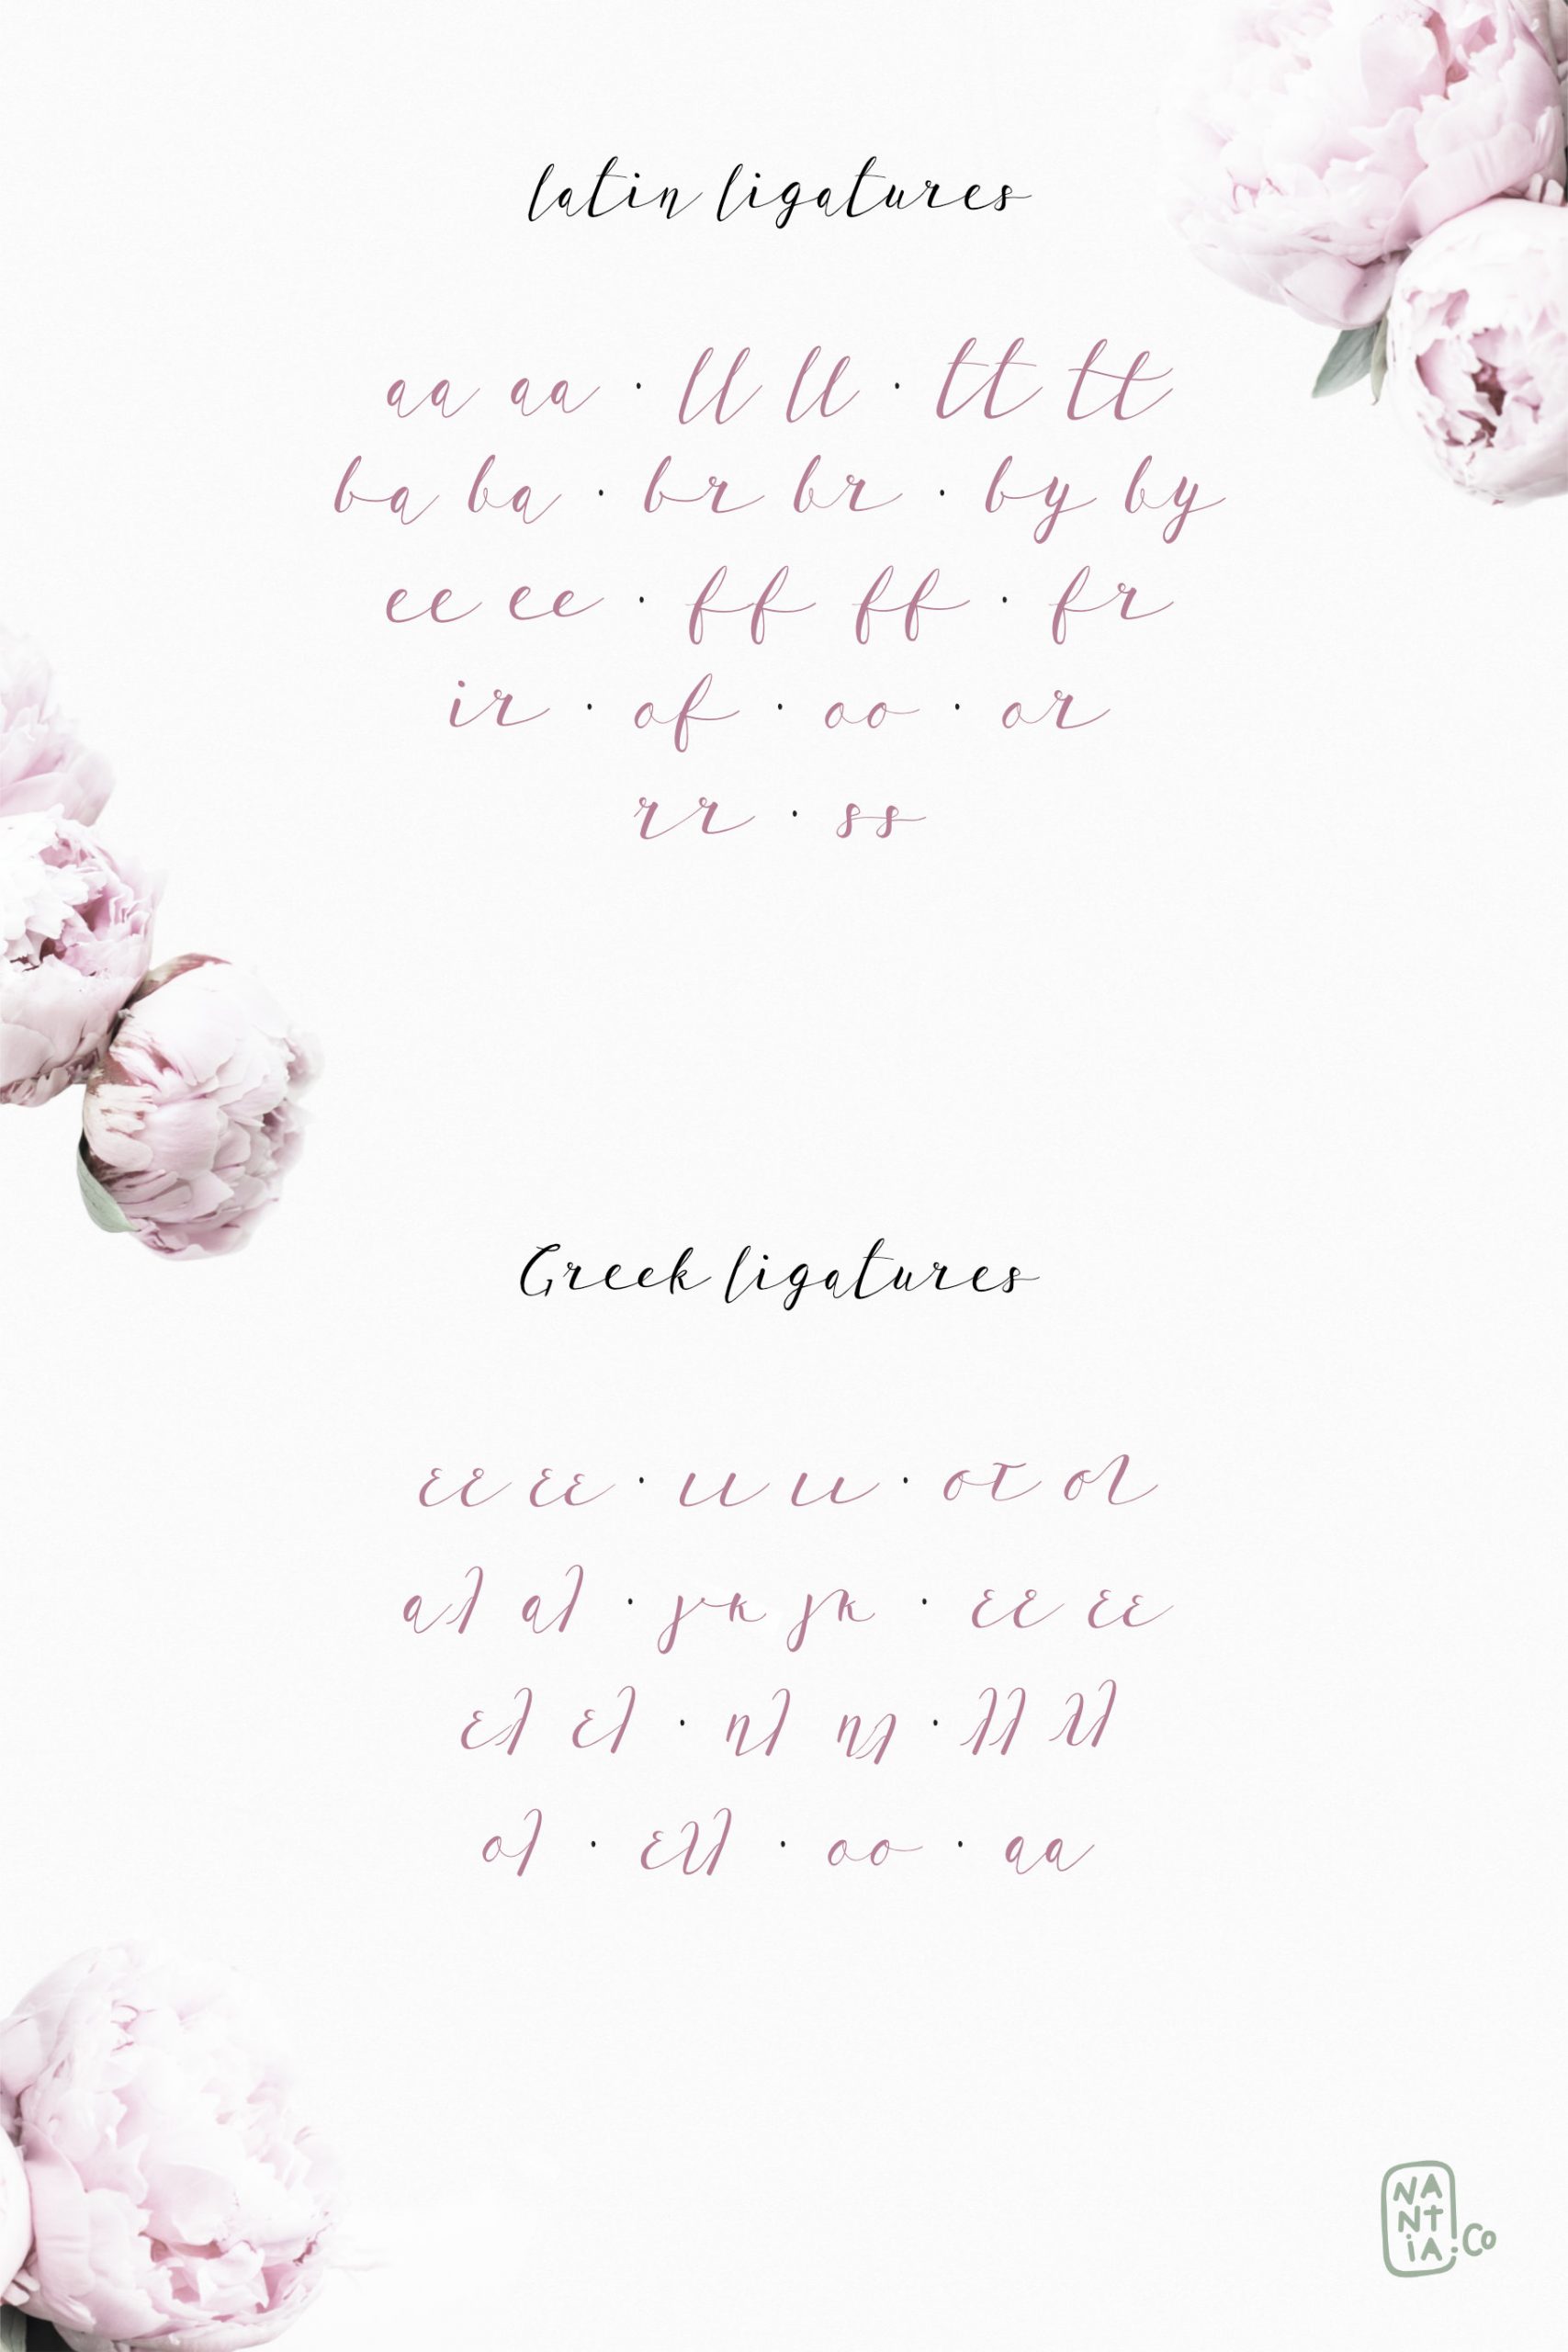 latin ligatures
aa aa · ll ll · tt tt
ba ba · br br · by by
ee ee · ff ff · fr
ir · of · oo · or
rr · ss
Greek ligatures
εε εε · ιι ιι · οτ ολ
αλ αλ · γκ γκ · εε εε
ελ ελ · ηλ ηλ · λλ λλ
ολ · ελλ · οο · αα
NANTiA.Co